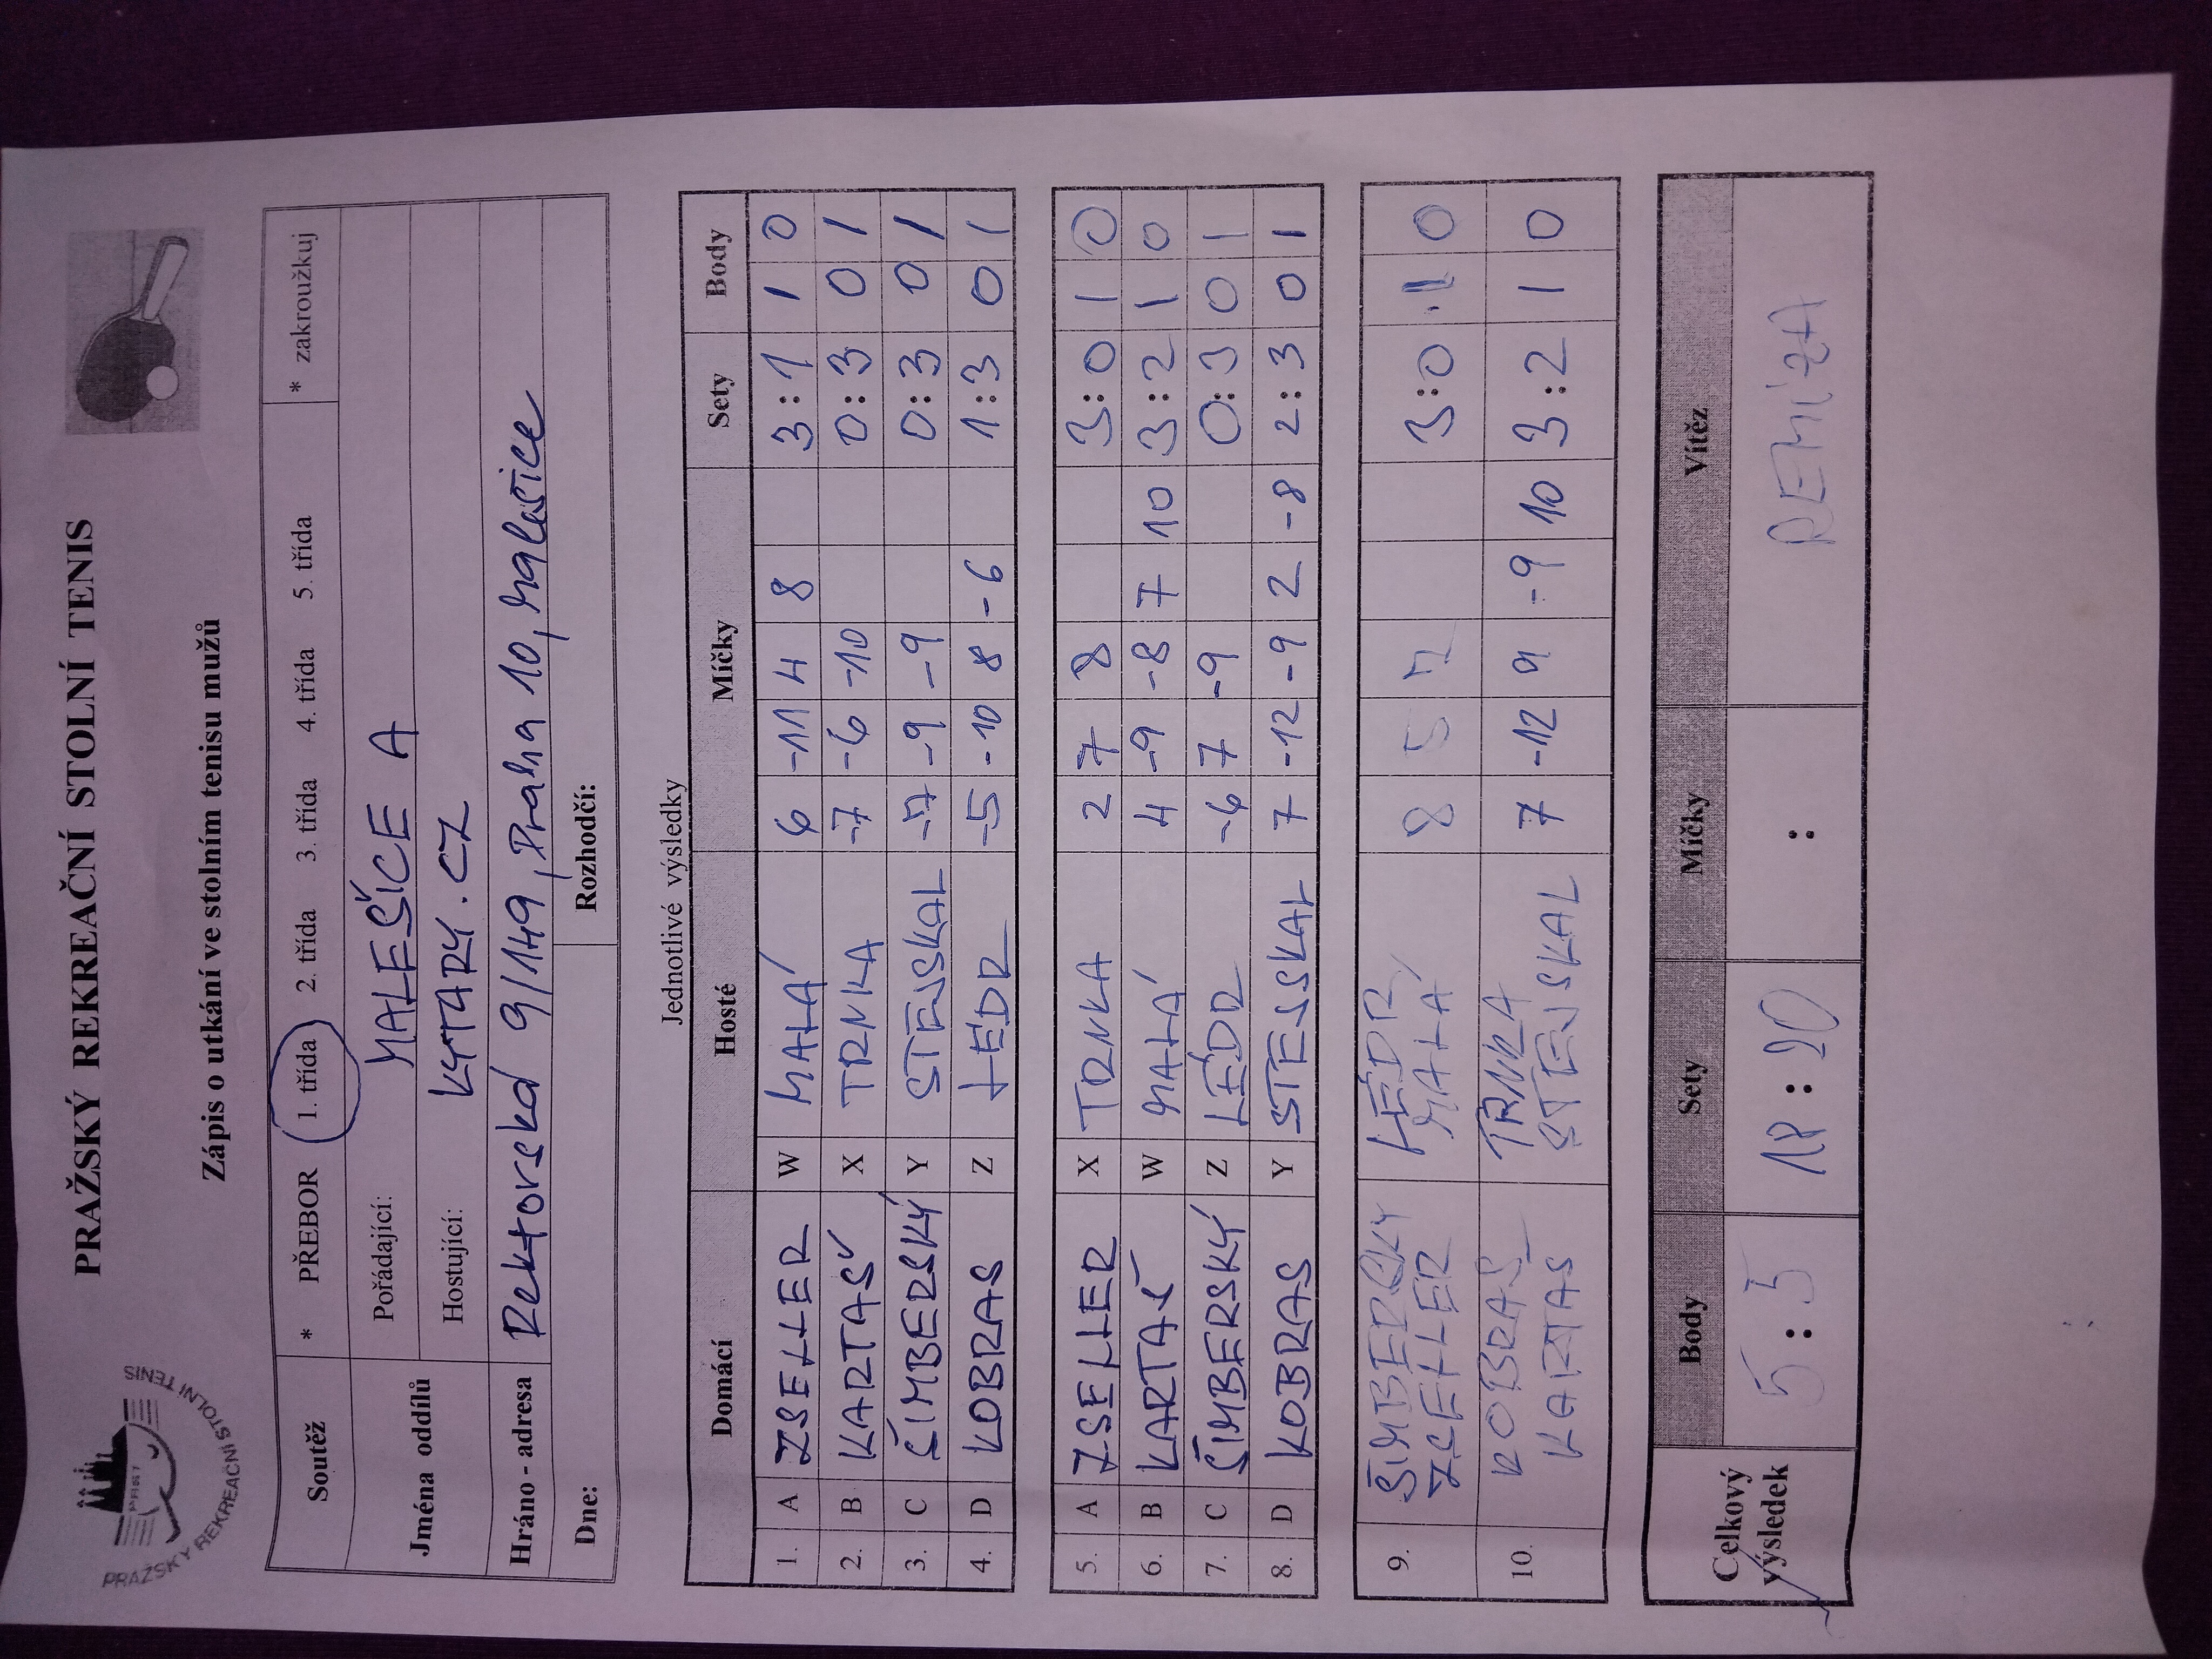 PRAŽSKÝ REKREAČNÍ STOLNÍ TENIS
PRAŽSKÝ REKREAČNÍ STOLNÍ TENIS
PRST
Zápis o utkání ve stolním tenisu mužů
Soutěž * PŘEBOR 1. třída 2. třída 3. třída 4. třída 5. třída * zakroužkuj
Jména oddílů
Pořádající: MALEŠICE A
Hostující: KYTARY.CZ
Hráno - adresa Rektorská 9/149, Praha 10, Malešice
Dne: Rozhodčí:
Jednotlivé výsledky
Domácí Hosté Míčky Sety Body
1. A ZSELLER W MALÁ 6 -11 4 8 3:1 1 0
2. B KARTAŠ X TRNKA -7 -6 -10 0:3 0 1
3. C ŠIMBERSKÝ Y STEJSKAL -7 -9 -9 0:3 0 1
4. D KOBRAS Z LÉDR -5 -10 8 -6 1:3 0 1
5. A ZSELLER X TRNKA 2 7 8 3:0 1 0
6. B KARTAŠ W MALÁ 4 -9 -8 7 10 3:2 1 0
7. C ŠIMBERSKÝ Z LÉDR -6 7 -9 0:3 0 1
8. D KOBRAS Y STEJSKAL 7 -12 -9 2 -8 2:3 0 1
9. ŠIMBERSKY LÉDR 8 5 7 3:0 1 0
ZSELLER MALÁ
10. KOBRAS TRNKA 7 -12 9 -9 10 3:2 1 0
KARTAS STEJSKAL
Celkový výsledek
Body Sety Míčky Vítěz
5:5 18:20 : REMÍZA